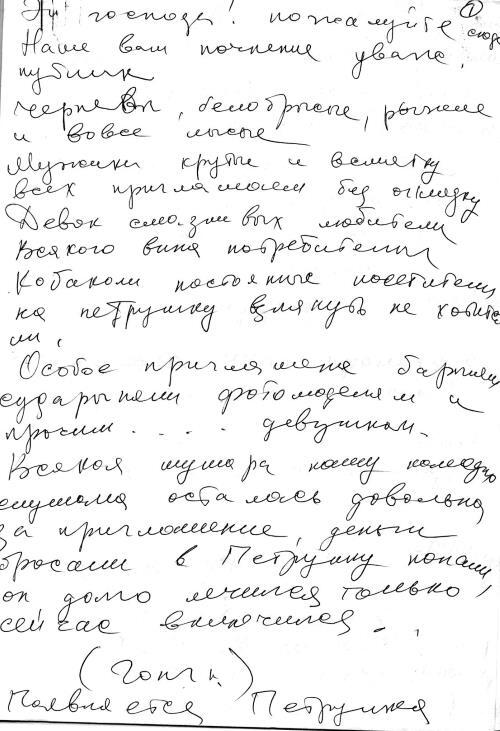 ①
Эй господа! пожалуйте сюда
Наше вам почтение уваж.
публик
чернявы, белобрысые, рыжие
и вовсе лысые
Мужики крутые и всмятку
всех приглашаем без оглядку
Девок смазливых любители
Всякого вина потребители
Кабаков постоянные посетители
на петрушку взглянуть не хотите
ли,
Особое приглашение барышням
сударыням фотомоделям и
прочим . . . . девушкам.
Всякая мушара нашу комедию
слушала осталась довольна
за приглашение, деньги
бросали в Петрушку попали
он долго лечился только
сейчас включился - . .
Появляется Петрушка